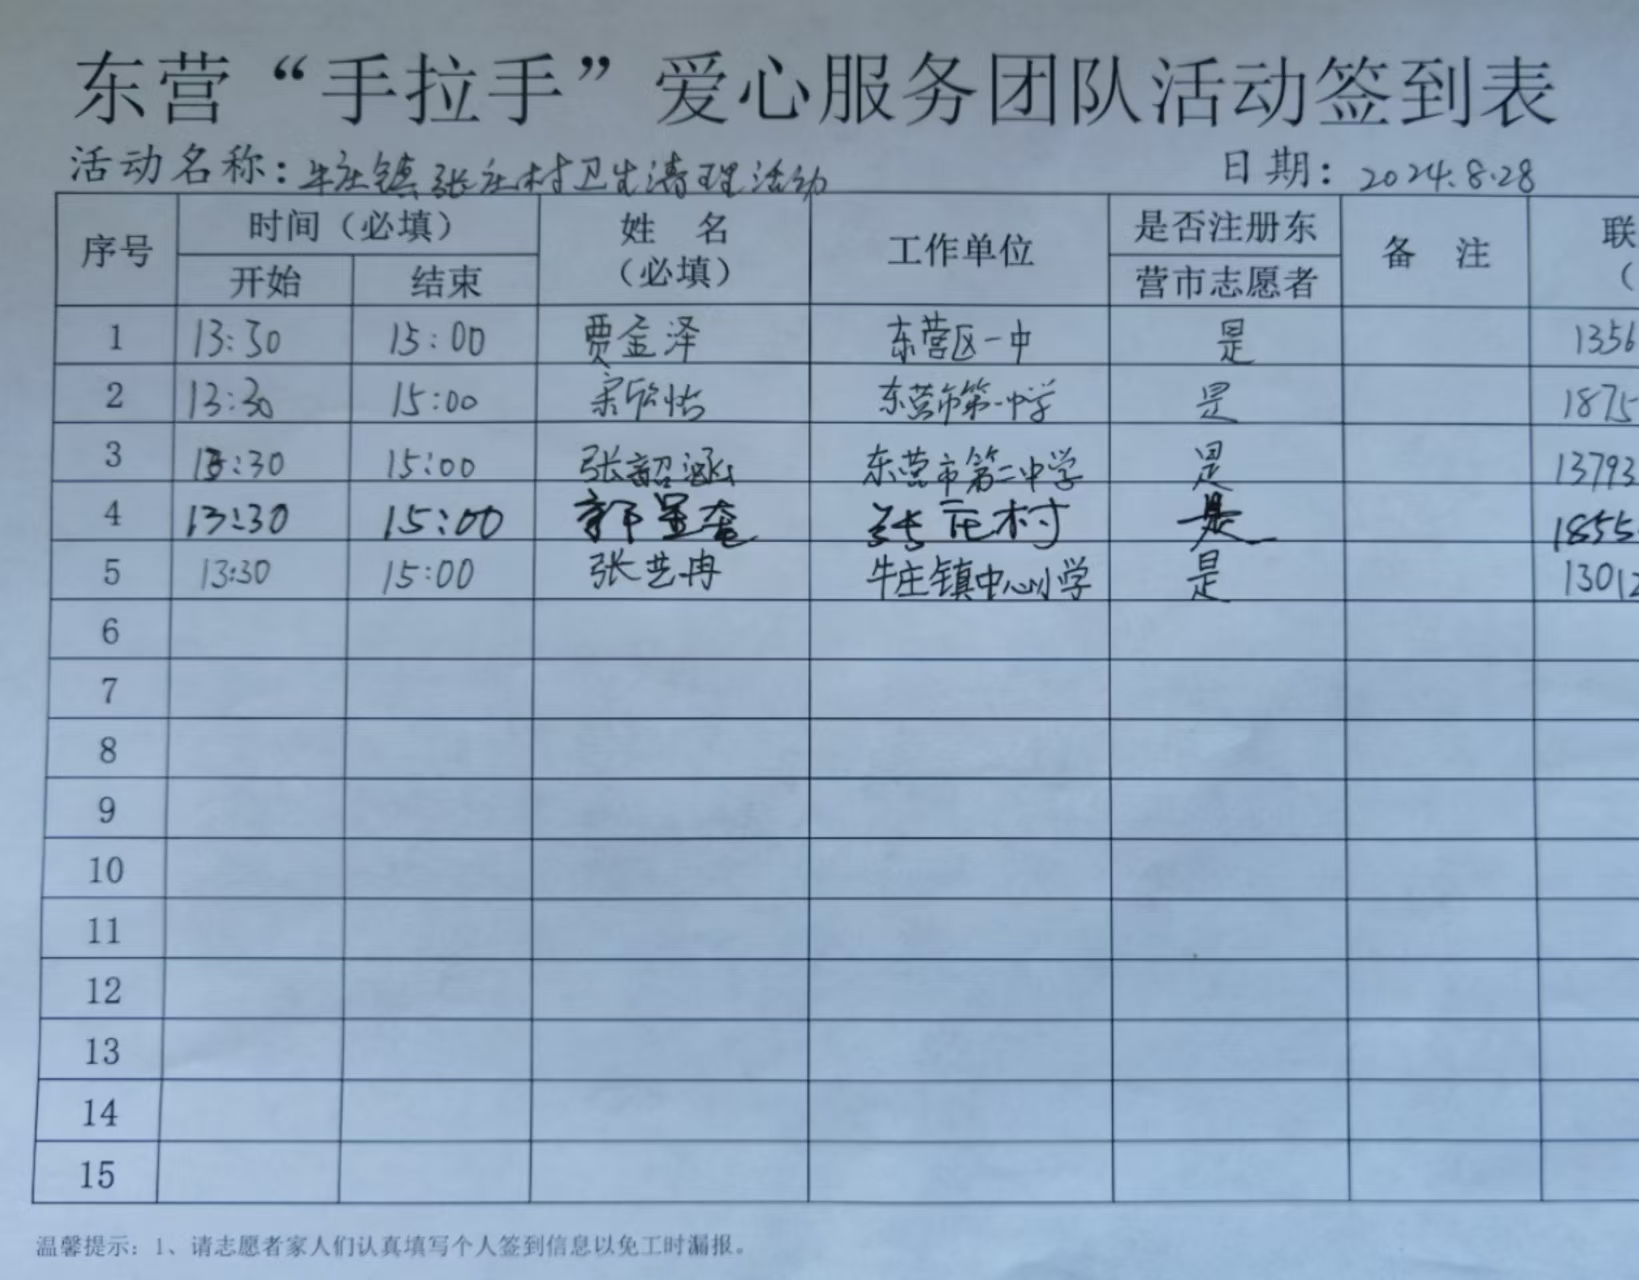 东营“手拉手”爱心服务团队活动签到表
活动名称：牛庄镇张庄村卫生清理活动 日期：2024.8.28
序号 时间（必填） 姓 名 工作单位 是否注册东 备 注 联
开始 结束 （必填） 营市志愿者 （
1 13:30 15:00 贾金泽 东营区一中 是 1356
2 13:30 15:00 宋欣怡 东营市第一中学 是 1875
3 13:30 15:00 张韶涵 东营市第二中学 是 13793
4 13:30 15:00 郭 张庄村 是 1855
5 13:30 15:00 张艺冉 牛庄镇中心小学 是 13012
6
7
8
9
10
11
12
13
14
15
温馨提示：1、请志愿者家人们认真填写个人签到信息以免工时漏报。